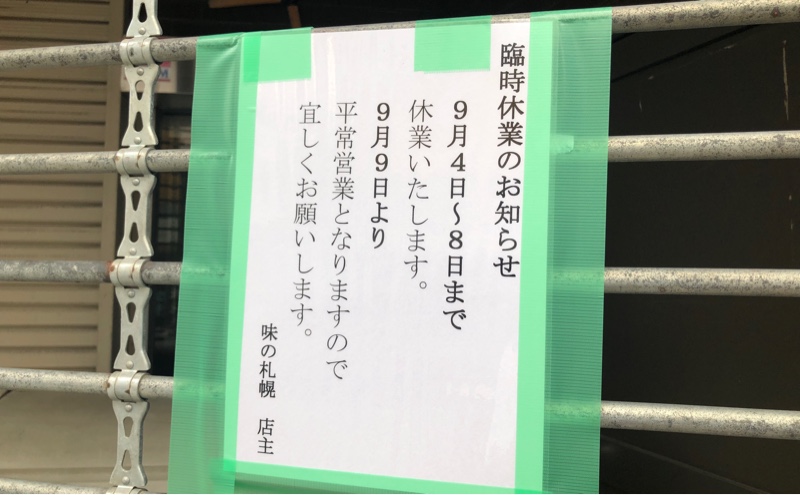 臨時休業のお知らせ
9月4日〜8日まで
休業いたします。
9月9日より
平常営業となりますので
宜しくお願いします。
味の札幌 店主